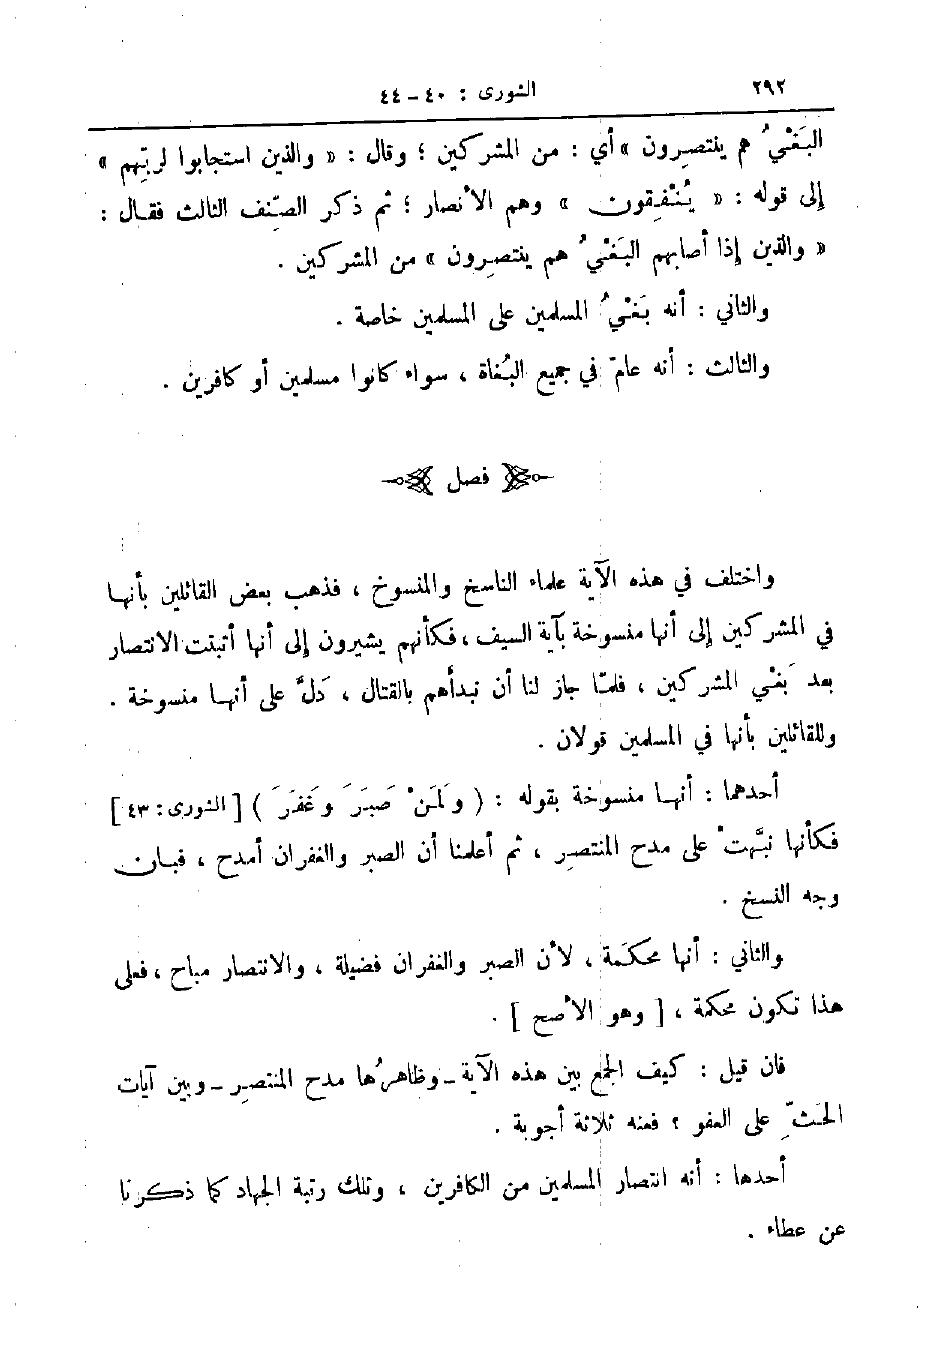 ٢٩٢
الشورى : ٤٠ - ٤٤
البَغْيُ هم ينتصِرون » أي : من المشركين ؛ وقال : « والذين استجابوا لربّهم »
إلى قوله : « يُنْفِقون » وهم الأنصار ؛ ثم ذكر الصِّنف الثالث فقال :
« والذين إذا أصابهم البَغْيُ هم ينتصِرون » من المشركين .
والثاني : أنه بَغْيُ المسلمين على المسلمين خاصة .
والثالث : أنه عامّ في جميع البُغاة ، سواء كانوا مسلمين أو كافرين .
فصل
واختلف في هذه الآية علماء الناسخ والمنسوخ ، فذهب بعض القائلين بأنها
في المشركين إلى أنها منسوخة بآية السيف ، فكأنهم يشيرون إلى أنها أثبتت الانتصار
بعد بَغْي المشركين ، فلمّا جاز لنا أن نبدأهم بالقتال ، دَلَّ على أنها منسوخة .
وللقائلين بأنها في المسلمين قولان .
أحدهما : أنها منسوخة بقوله : ( ولَمَنْ صَبَرَ وغَفَرَ ) [ الشورى : ٤٣ ]
فكأنها نبَّهتْ على مدح المنتصِر ، ثم أعلمنا أن الصبر والغفران أمدح ، فبان
وجه النسخ .
والثاني : أنها محكَمة ، لأن الصبر والغفران فضيلة ، والانتصار مباح ، فعلى
هذا تكون محكمة ، [ وهو الأصح ] .
فان قيل : كيف الجمع بين هذه الآية - وظاهرُها مدح المنتصِر - وبين آيات
الحَثِّ على العفو ؟ فعنه ثلاثة أجوبة .
أحدها : أنه انتصار المسلمين من الكافرين ، وتلك رتبة الجهاد كما ذكرنا
عن عطاء .